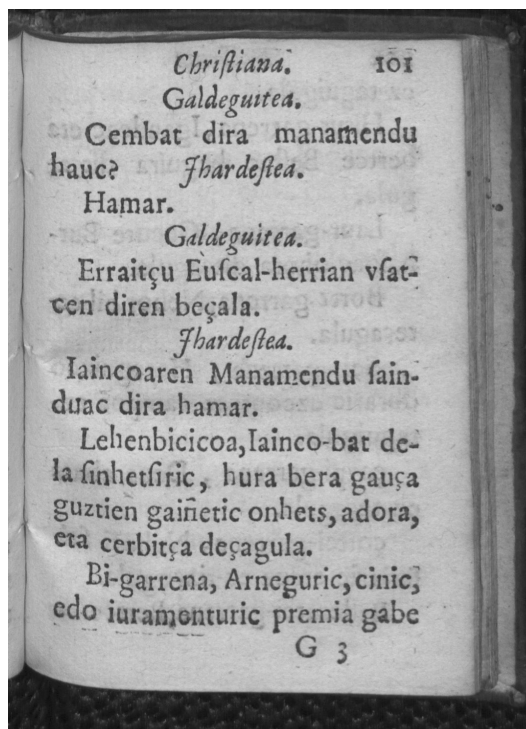 Chriſtiana. 101
Galdeguitea.
Cembat dira manamendu
hauc? Jhardeſtea.
Hamar.
Galdeguitea.
Erraitçu Euſcal-herrian vſat-
cen diren beçala.
Jhardeſtea.
Iaincoaren Manamendu ſain-
duac dira hamar.
Lehenbicicoa, Iainco-bat de-
la ſinhetſiric, hura bera gauça
guztien gaiñetic onhets, adora,
eta cerbitça deçagula.
Bi-garrena, Arneguric, cinic,
edo iuramenturic premia gabe
G 3